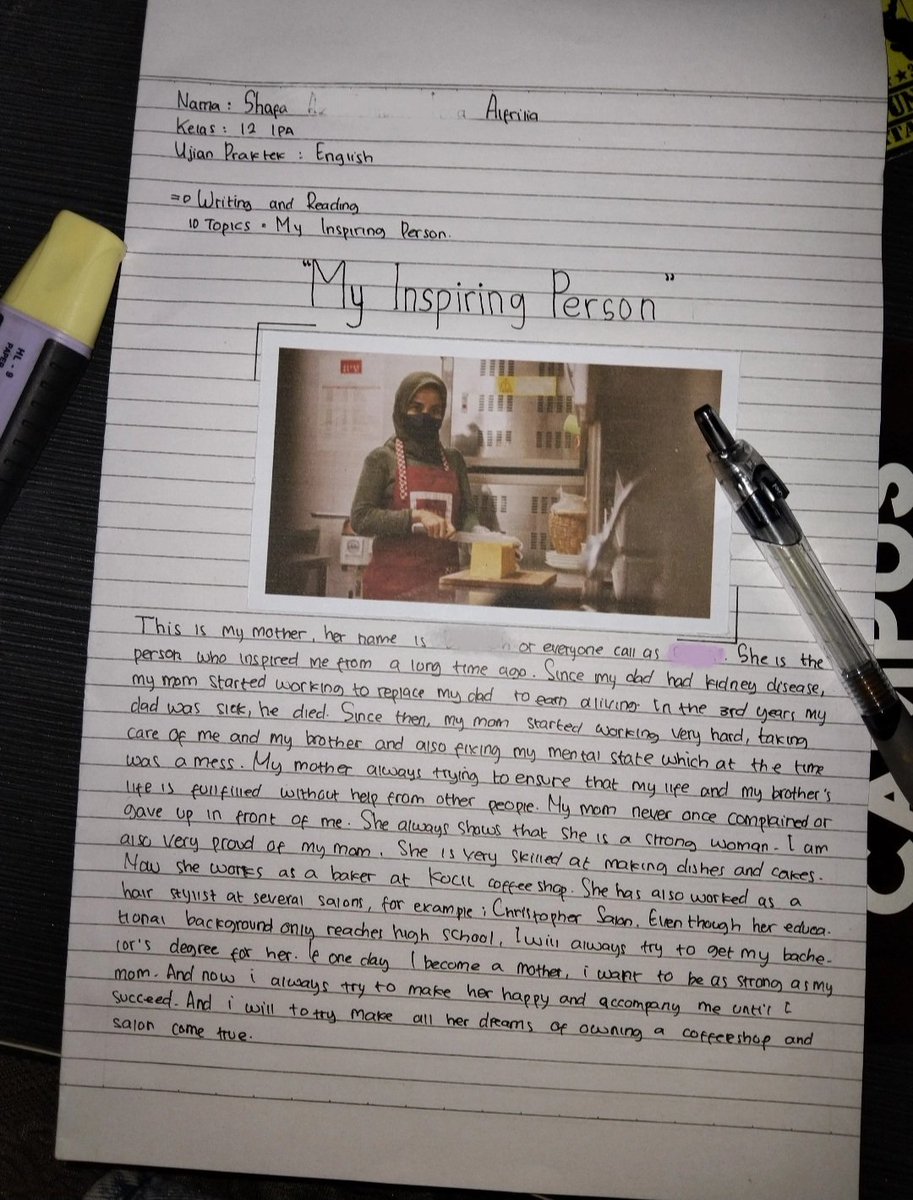 Nama : Shafa Alfrilia
Kelas : 12 IPA
Ujian Praktek : English
=> Writing and Reading
Topics : My Inspiring Person.
"My Inspiring Person"
This is my mother, her name is or everyone call as . She is the
person who inspired me from a long time ago. Since my dad had kidney disease,
my mom started working to replace my dad to earn a living. In the 3rd years my
dad was sick, he died. Since then, my mom started working very hard, taking
care of me and my brother and also fixing my mental state which at the time
was a mess. My mother always trying to ensure that my life and my brother's
life is fullfilled without help from other people. My mom never once complained or
gave up in front of me. She always shows that she is a strong woman. I am
also very proud of my mom. She is very skilled at making dishes and cakes.
Now she works as a baker at KOCIL coffee shop. She has also worked as a
hair stylist at several salons, for example ; Christopher Salon. Even though her educa-
tional background only reaches high school, I will always try to get my bache-
lor's degree for her. If one day I become a mother, i want to be as strong as my
mom. And now i always try to make her happy and accompany me until I
succeed. And i will to try make all her dreams of owning a coffeeshop and
salon come true.
HL - 9
PAPER
CAMPUS